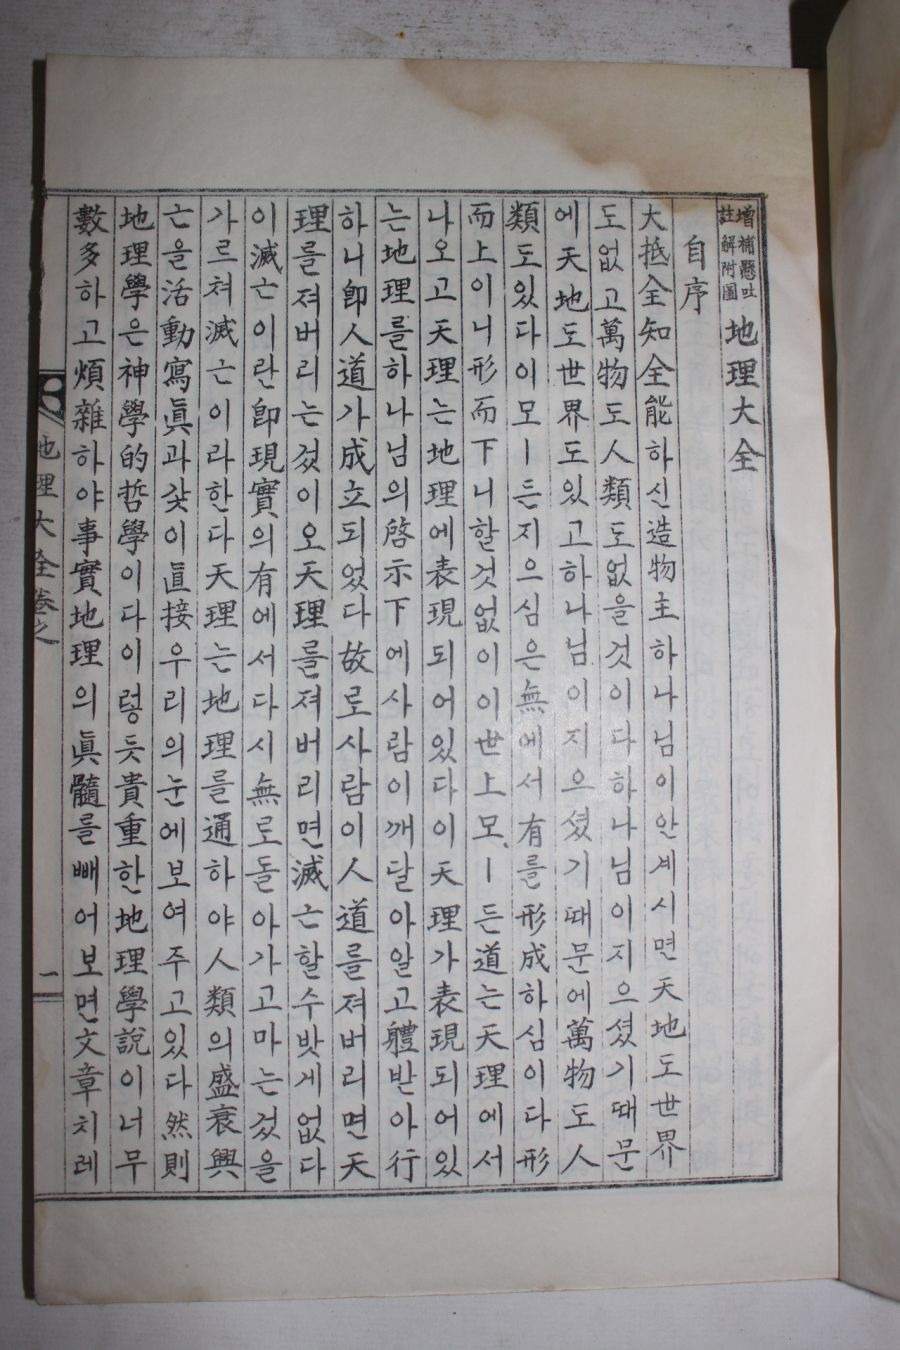 增補懸吐註解附圖 地理大全
自序
大抵全知全能하신造物主하나님이안계시면天地도世界
도없고萬物도人類도없을것이다하나님이지으셨기때문
에天地도世界도있고하나님이지으셨기때문에萬物도人
類도있다이모ㅣ든지으심은無에서有를形成하심이다形
而上이니形而下니할것없이이世上모ㅣ든道는天理에서
나오고天理는地理에表現되어있다이天理가表現되어있
는地理를하나님의啓示下에사람이깨달아알고體받아行
하니卽人道가成立되었다故로사람이人道를져버리면天
理를져버리는겄이오天理를져버리면滅亡할수밧게없다
이滅亡이란卽現實의有에서다시無로돌아가고마는겄을
가르쳐滅亡이라한다天理는地理를通하야人類의盛衰興
亡을活動寫眞과갗이直接우리의눈에보여주고있다然則
地理學은神學的哲學이다이렇듯貴重한地理學說이너무
數多하고煩雜하야事實地理의眞髓를빼어보면文章치레
地理大全卷之 一